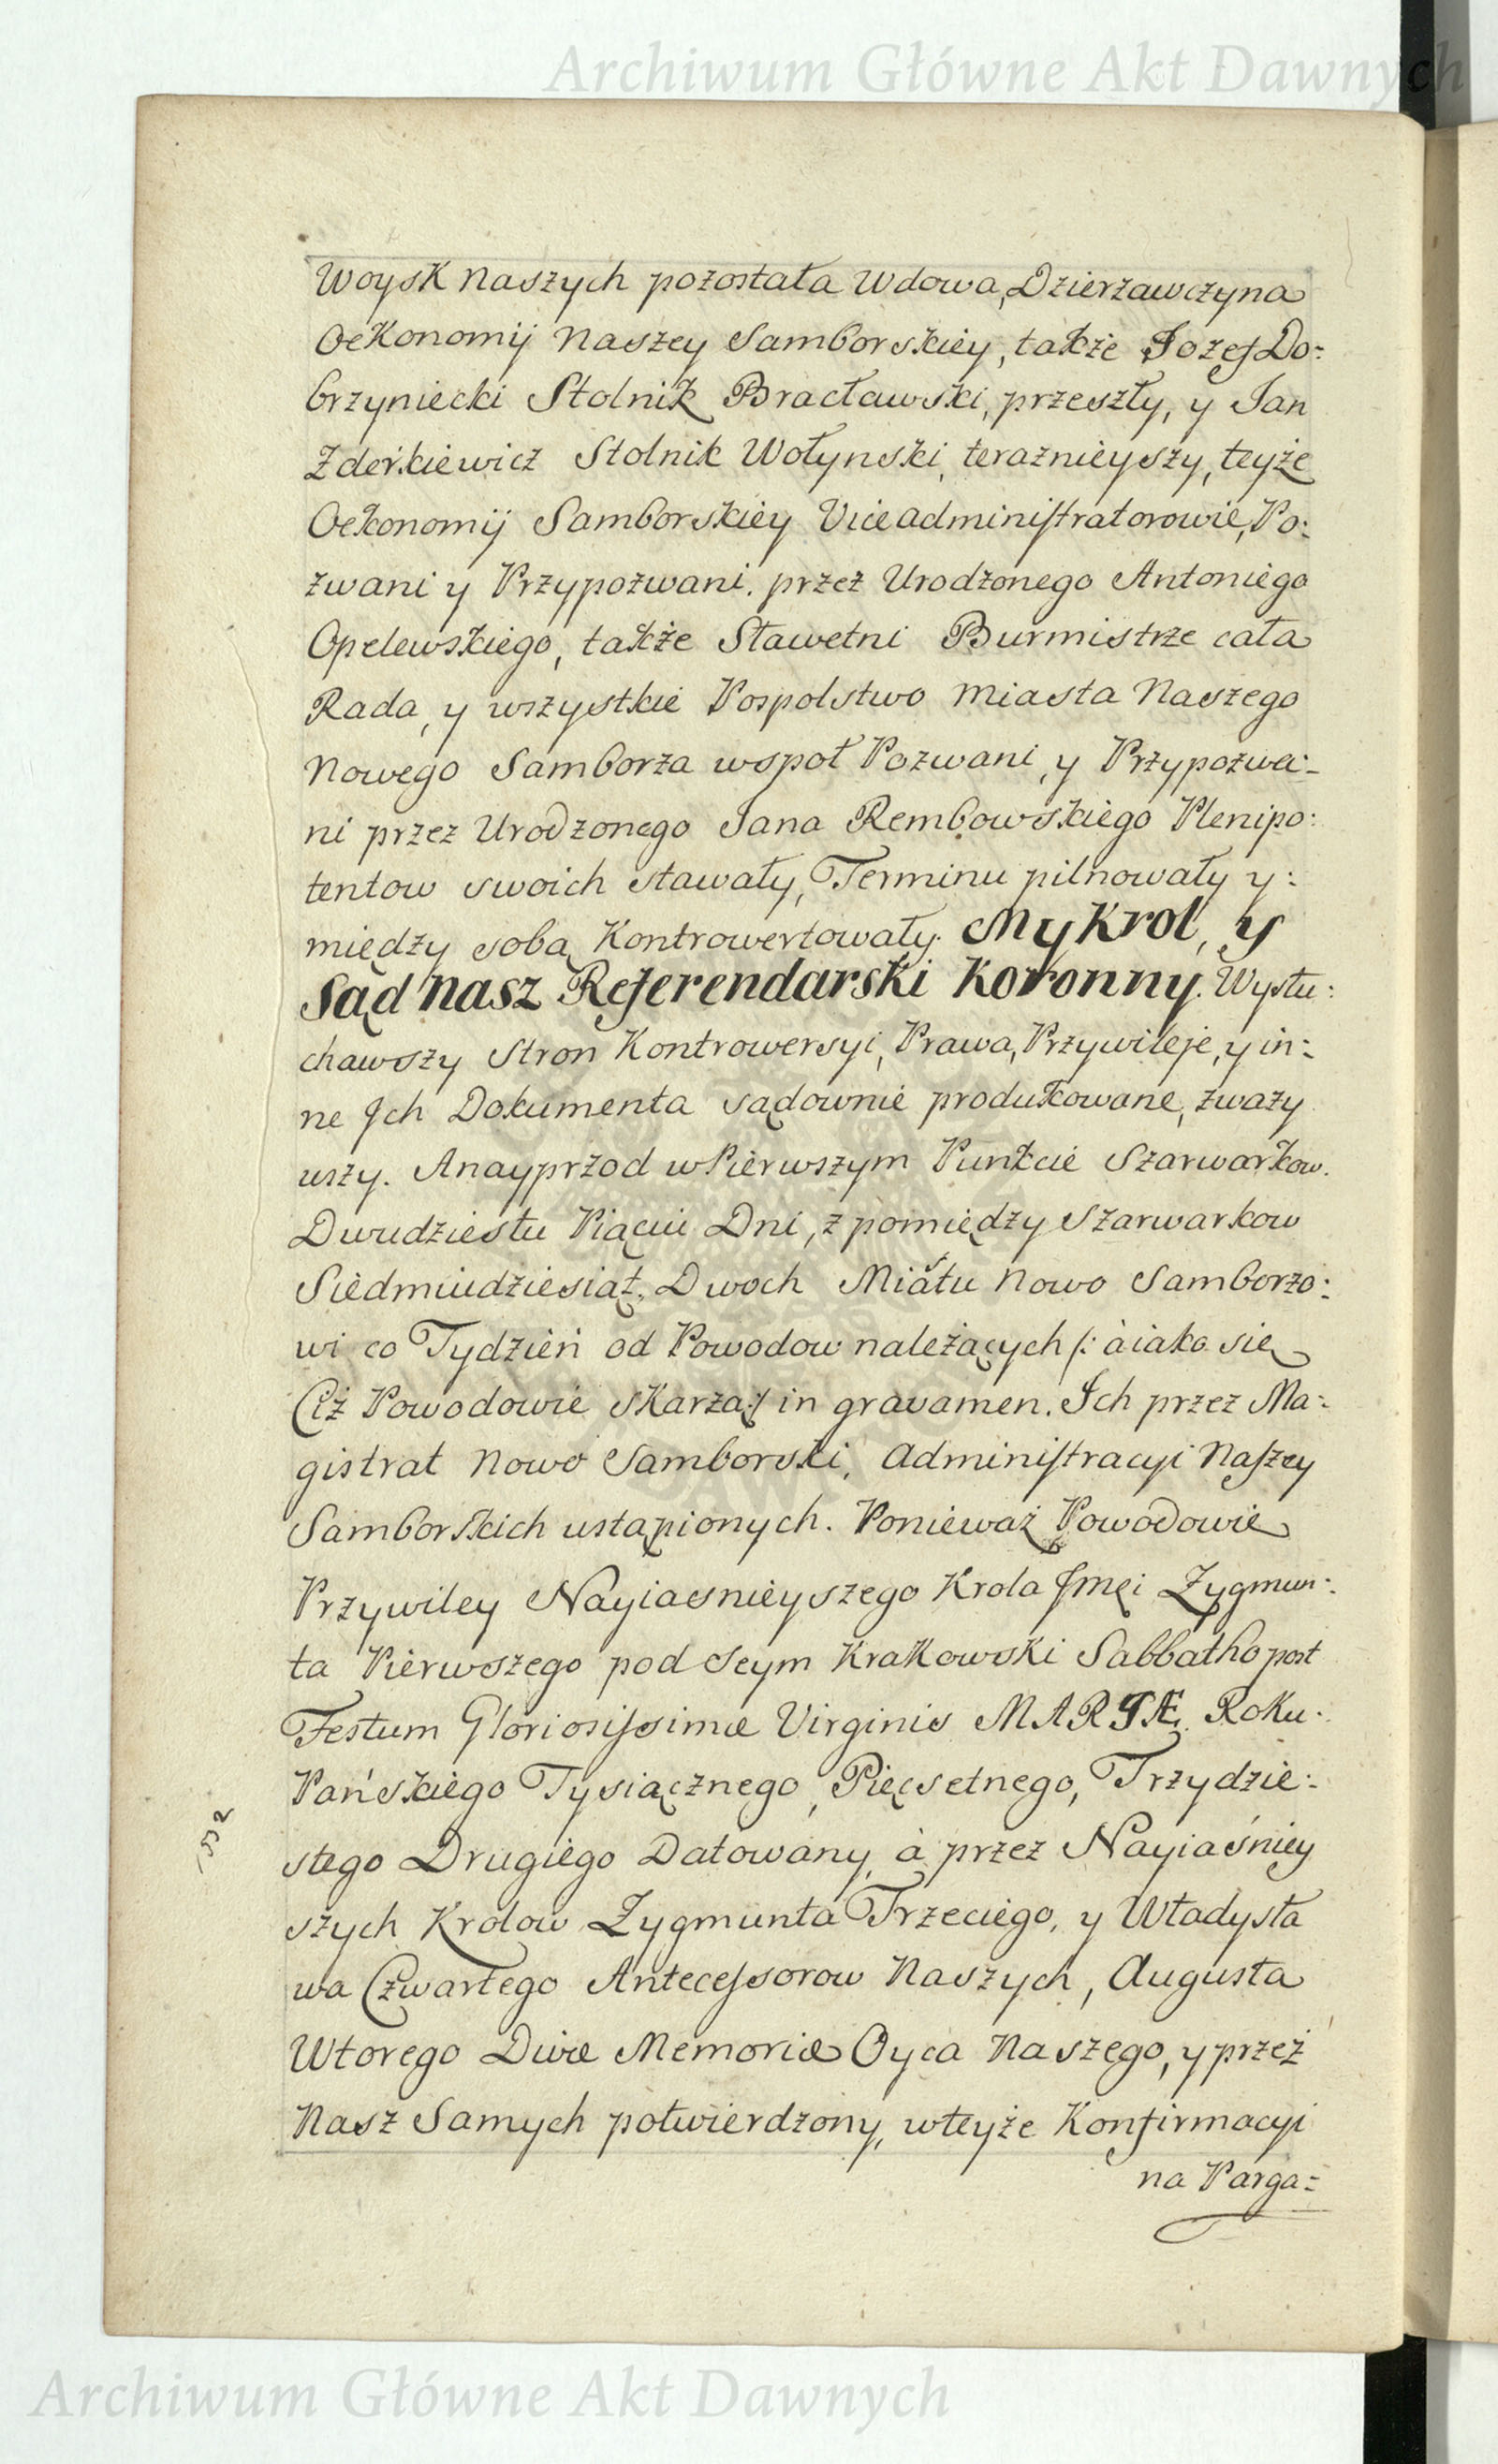 Archiwum Główne Akt Dawnych
Woysk Naszych pozostała Wdowa, Dzierzawczyna
Oekonomij Naszey Samborskiey, także Jozef Do=
brzyniecki Stolnik Bracławski, przeszły, y Jan
Zderkiewicz Stolnik Wołynski, teraznieyszy, teyże
Oekonomij Samborskiey Viceadministratorowie, Po=
zwani y Przypozwani. przez Urodzonego Antoniego
Opelewskiego, także Sławetni Burmistrze cała
Rada, y wszystkie Pospolstwo Miasta Naszego
Nowego Samborza wspoł Pozwani, y Przypozwa=
ni przez Urodzonego Jana Rembowskiego Plenipo=
tentow swoich stawały, Terminu pilnowały y=
między sobą Kontrowertowały. My Krol, y
Sąd Nasz Referendarski Koronny. Wysłu=
chawszy Stron Kontrowersyi, Prawa, Przywileje, y in=
ne Jch Dokumenta sądownie produkowane, zważy
wszy. Anayprzod w Pierwszym Punkcie Szarwarkow.
Dwudziestu Piąciu Dni, z pomiędzy Szarwarkow
Siedmiudziesiąt, Dwoch Miastu Nowo Samborzo=
wi co Tydzień od Powodow należących /: à iako się
Ciż Powodowie skarzą :/ in gravamen. Ich przez Ma=
gistrat Nowo Samborski, Administracyi Naszey
Samborskich ustąpionych. Ponieważ Powodowie
Przywiley Nayiasnieyszego Krola Jmci Zygmun=
ta Pierwszego pod Seym Krakowski Sabbatho post
Festum Gloriosissimæ Virginis MARIÆ, Roku.
Pańskiego Tysiącznego, Pięcsetnego, Trzydzie=
1532
stego Drugiego Datowany, à przez Nayiaśniey
szych Krolow Zygmunta Trzeciego, y Władysła
wa Czwartego Antecessorow Naszych, Augusta
Wtorego Divæ Memoriæ Oyca Naszego, y przez
Nasz Samych potwierdzony, wteyże Konfirmacyi
na Parga=
Archiwum Główne Akt Dawnych